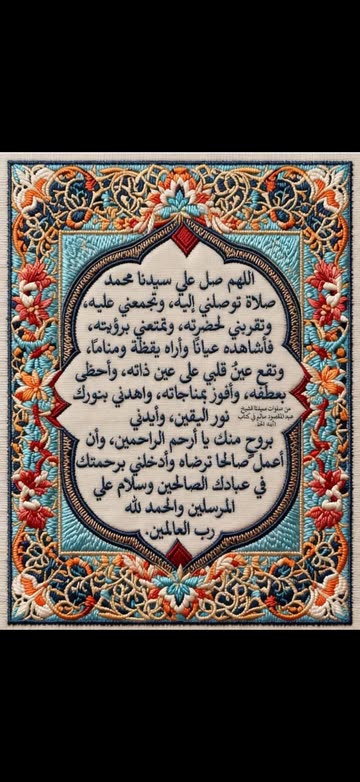 اللهم صل علي سيدنا محمد
صلاة توصلني إليه، وتجمعني عليه،
وتقربني لحضرته، وتمتعني برؤيته،
فأشاهده عيانًا وأراه يقظة ومنامًا،
وتقع عينُ قلبي على عين ذاته، وأحظى
بعطفه، وأفوز بمناجاته، واهدني بنورك
نور اليقين، وأيدني
بروح منك يا أرحم الراحمين، وأن
أعمل صالحا ترضاه وأدخلني برحمتك
في عبادك الصالحين وسلام علي
المرسلين والحمد لله
رب العالمين.
من صلوات سيدنا الشيخ
عبد المقصود سالم في كتاب